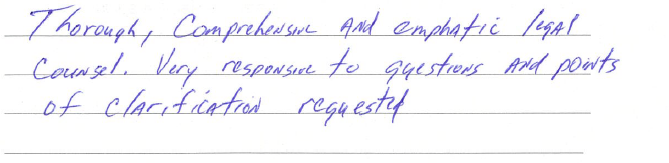 Thorough, Comprehensive And emphatic legal
Counsel. Very responsive to questions and points
of clarification requested